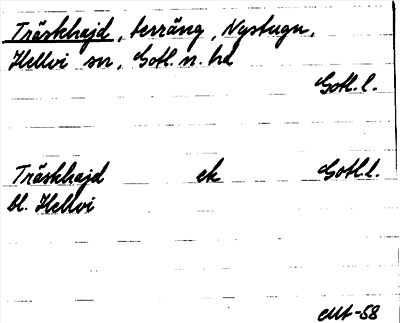 Träskhajd, terräng, Nystugu,
Hellvi sn, Gotl. n. hd
Gotl. l.
Träskhajd ek Gotl. l.
bl. Hellvi
-58